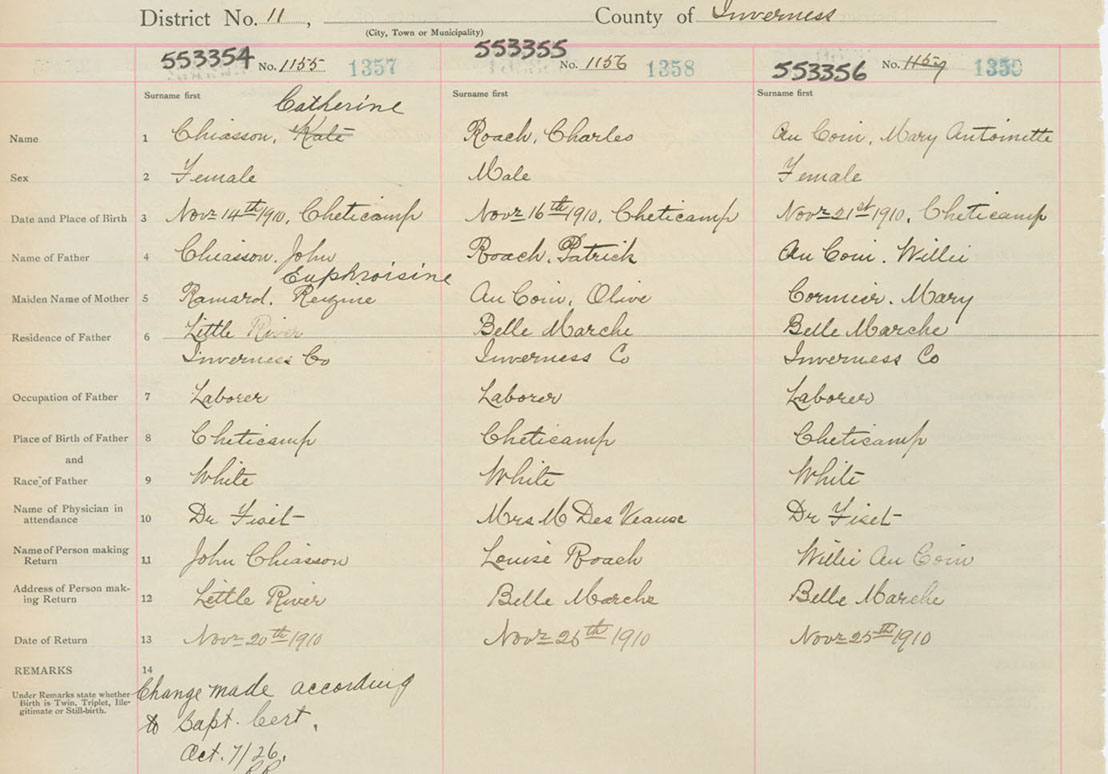 District No. 11, County of Inverness
(City, Town or Municipality)
553354 No. 1155 1357 553355 No. 1156 1358 553356 No. 1157 1359
Surname first Surname first Surname first
Catherine
Name 1 Chiasson, Kate Roach, Charles Au Coin, Mary Antoinette
Sex 2 Female Male Female
Date and Place of Birth 3 Novr 14th 1910, Cheticamp Novr 16th 1910, Cheticamp Novr 21st 1910, Cheticamp
Name of Father 4 Chiasson, John Roach, Patrick Au Coin, Willie
Euphroisine
Maiden Name of Mother 5 Ramard, Au Coin, Olive Cormier, Mary
Residence of Father 6 Little River Belle Marche Belle Marche
Inverness Co Inverness Co Inverness Co
Occupation of Father 7 Laborer Laborer Laborer
Place of Birth of Father 8 Cheticamp Cheticamp Cheticamp
and
Race of Father 9 White White White
Name of Physician in attendance 10 Dr Fiset Mrs M Des Veause Dr Fiset
Name of Person making Return 11 John Chiasson Louise Roach Willie Au Coin
Address of Person making Return 12 Little River Belle Marche Belle Marche
Date of Return 13 Novr 20th 1910 Novr 26th 1910 Novr 25th 1910
REMARKS 14
Under Remarks state whether
Birth is Twin, Triplet, Ille-
gitimate or Still-birth.
Change made according
to Bapt. Cert.
Oct. 7/26.